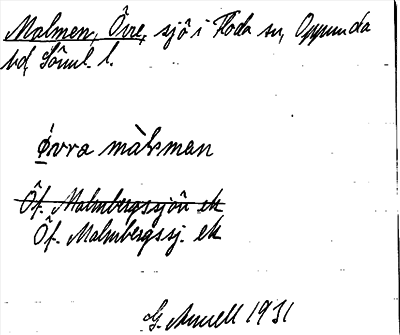 Malmen, Övre, sjö i Floda sn, Oppunda
hd, Söml. l.
Øvra màlman
Öf. Malmbergssjön ek
Öf. Malmbergssj. ek
G. Amell 1931